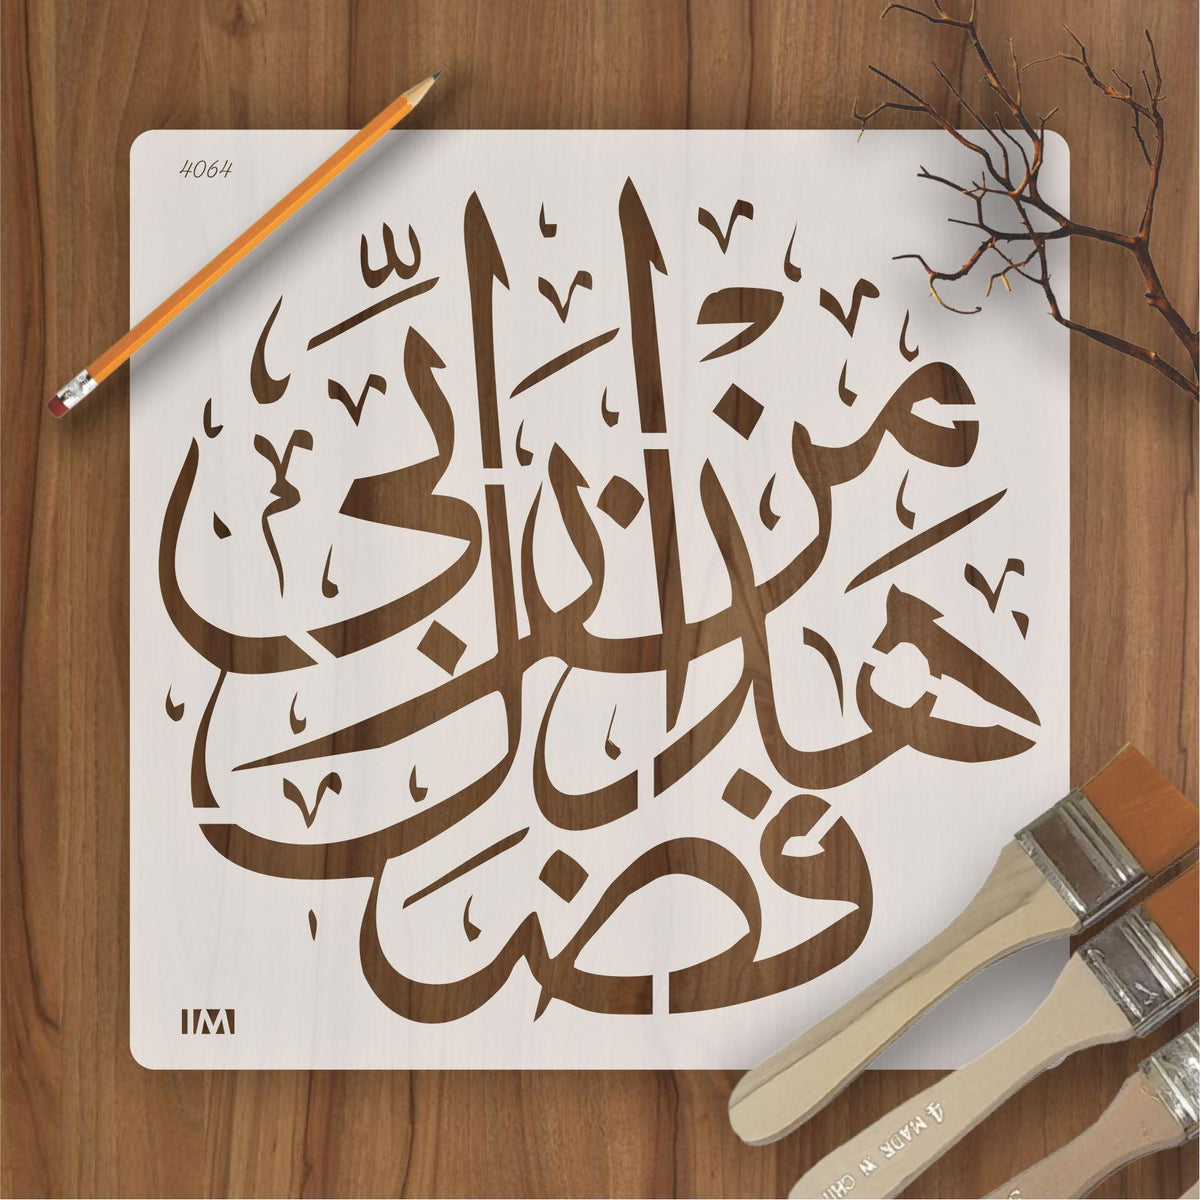 4064
هَذَا مِنْ فَضْلِ رَبِّي
IMI
4 MADE IN CHI